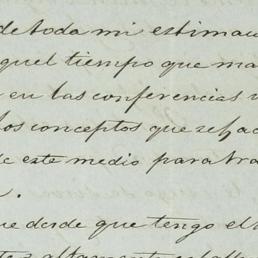 de toda mi estima
quel tiempo que ma
en las conferencias
los conceptos que se ha
de este medio para tra
ue desde que tengo el